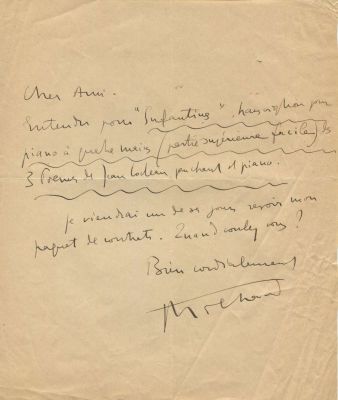 Cher Ami.
Entendu pour "Enfantines", transcription pour
piano à quatre mains (partie supérieure facile) des
3 Poèmes de Jean Cocteau pour chant et piano.
Je viendrai un de ces jours revoir mon
paquet de contrats. Quand voulez vous ?
Bien cordialement
Milhaud